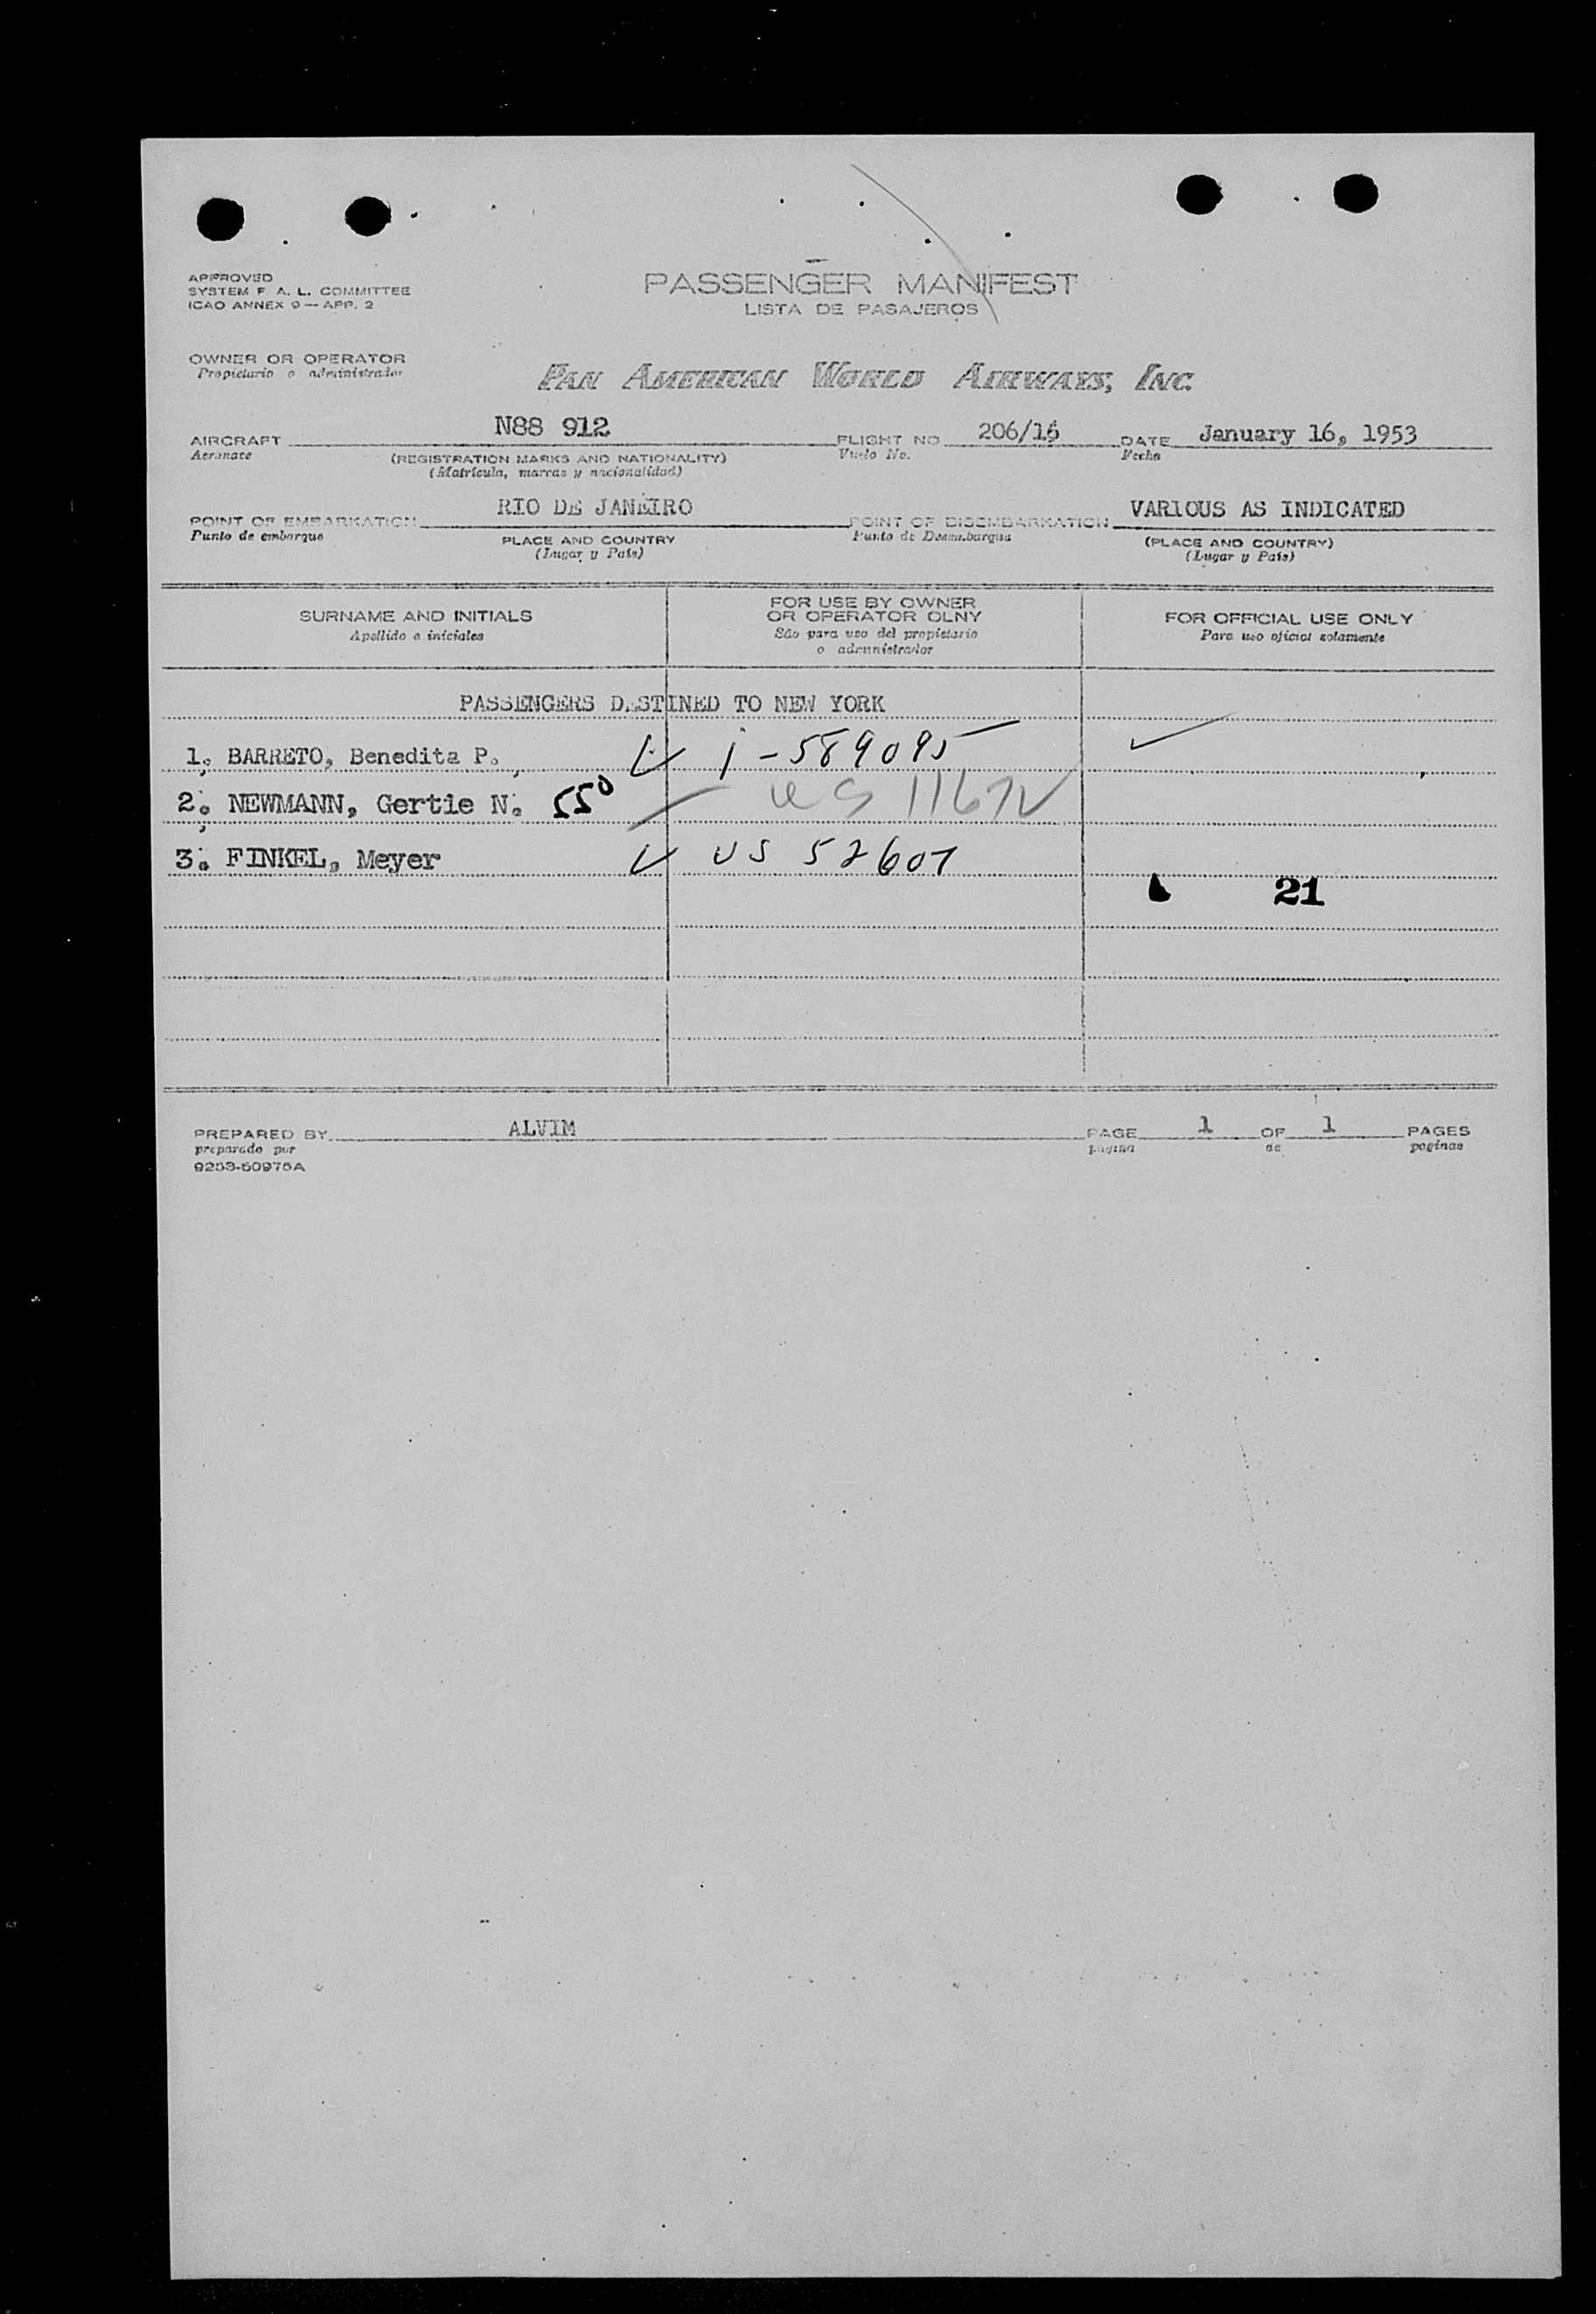 APPROVED
SYSTEM F. A. L. COMMITTEE
ICAO ANNEX 9 — APP. 2
PASSENGER MANIFEST
LISTA DE PASAJEROS
OWNER OR OPERATOR
Propietario o administrador
PAN AMERICAN WORLD AIRWAYS, INC.
AIRCRAFT N88 912 FLIGHT NO. 206/15 DATE January 16, 1953
Aeronave (REGISTRATION MARKS AND NATIONALITY) Vuelo No. Fecha
(Matrícula, marcas y nacionalidad)
POINT OF EMBARKATION RIO DE JANEIRO POINT OF DISEMBARKATION VARIOUS AS INDICATED
Punto de embarque PLACE AND COUNTRY Punto de Desembarque (PLACE AND COUNTRY)
(Lugar y País) (Lugar y País)
SURNAME AND INITIALS
Apellido e iniciales
FOR USE BY OWNER
OR OPERATOR OLNY
Sólo para uso del propietario
o administrador
FOR OFFICIAL USE ONLY
Para uso oficial solamente
PASSENGERS DESTINED TO NEW YORK
1. BARRETO, Benedita P. ✓ i-589095 ✓
2. NEWMANN, Gertie N. 550 US 11672
3. FINKEL, Meyer ✓ US 52607
21
PREPARED BY ALVIM PAGE 1 OF 1 PAGES
preparado por página de paginas
9253-50975A